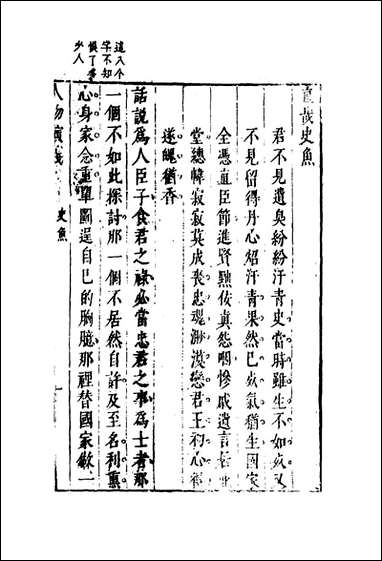 直哉史魚
君不見遺臭紛紛汗青史當時雖生不如死又
不見留得丹心炤汗青果然已死氣猶生國家
全憑直臣節進賢黜佞真怨咽慘戚遺言
堂總幃寂寂莫成喪忠魂渺漠戀君王初心
遂
猶香
話說為人臣子食君之祿必當忠君之事為士者那
一個不如此探討那一個不居然自許及至名利熏
心身家念重單圖逞自己的胸臆那裡替國家做一
人物演義
史魚
這入个
字不知
悞了多
少人